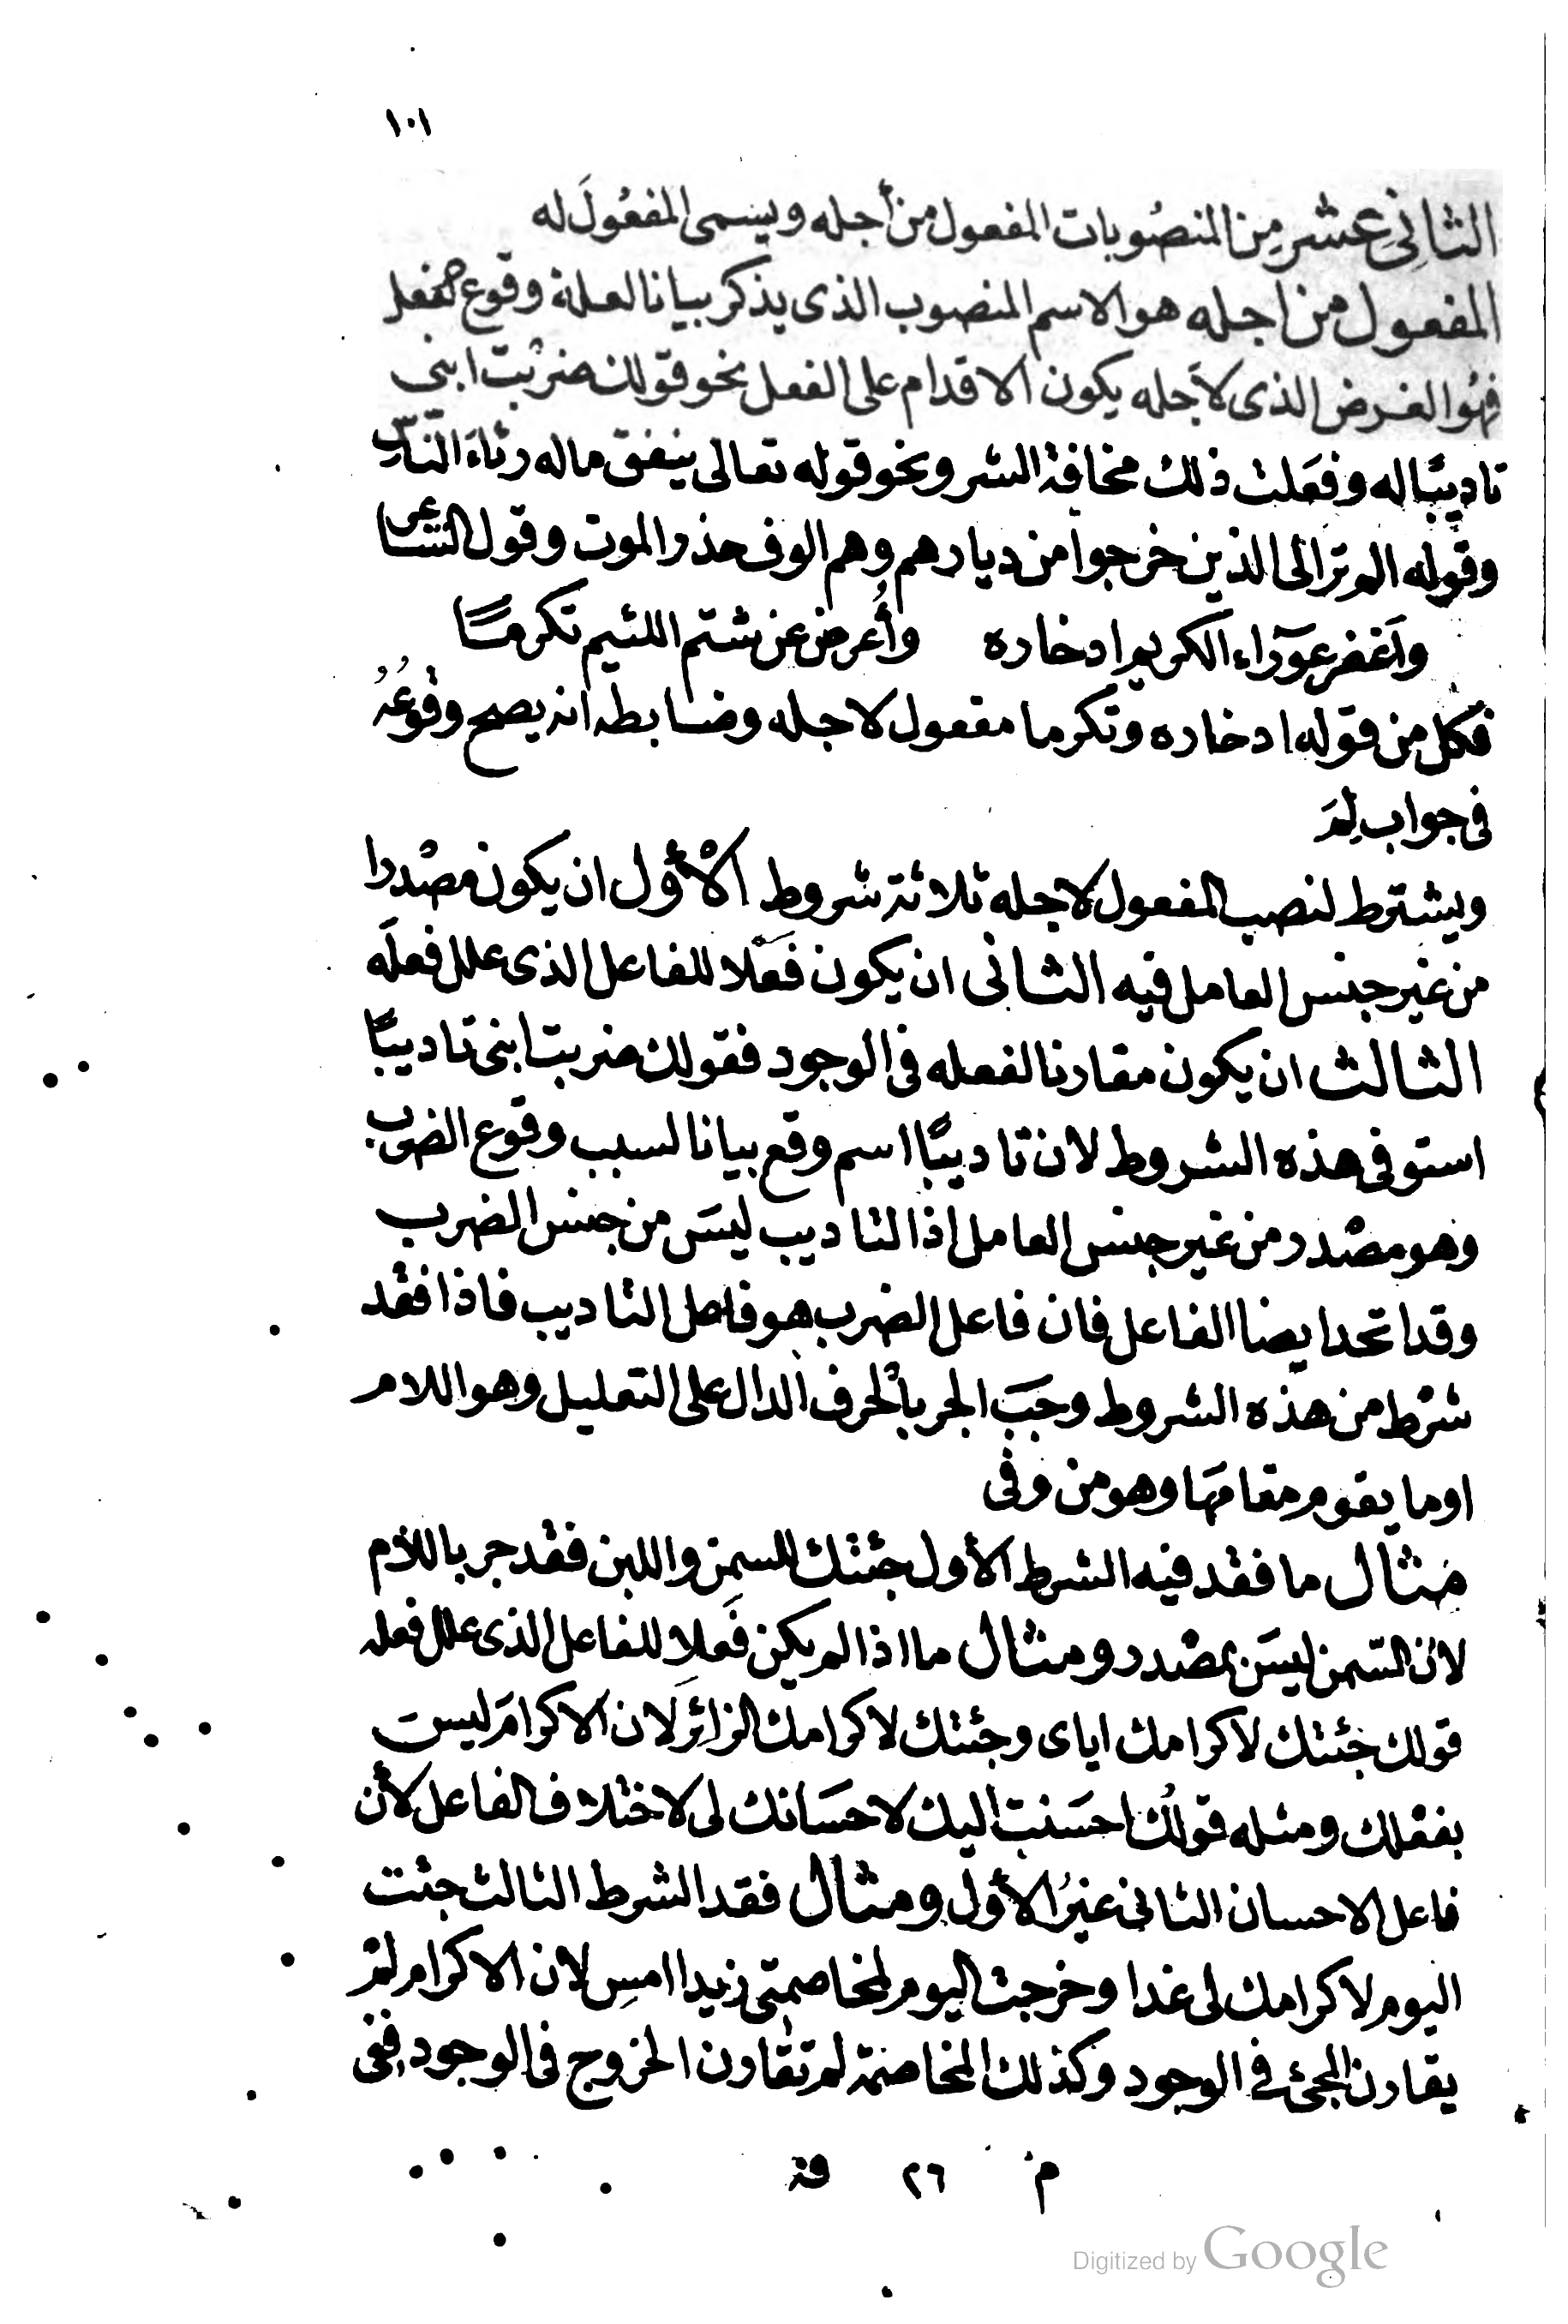 ١٠١
الثانِى عشر مِن المنصُوبات المفعول من أجله ويسمى المفعُولَ له
المفعول من اجله هو الاسم المنصوب الذى يذكر بيانا لعلة وقوع الفعل
فهُوا الغرض الذى لاَجله يكون الاقدام على الفعل نحو قولك ضربْت ابنى
تاديبًا له وفعَلت ذلك مخافة الشر ونحو قوله تعالى ينفق ماله رئاءَ النّاس
وقوله الم ترَ الى الذين خرجوا من ديارهم وهم الوف حذر الموت وقول الشاعر
وأغفر عورَاء الكريم ادخاره وأُعرض عن شتم اللئيم تكرمًا
فكل من قوله ادخاره وتكرما مفعول لاجله وضابطه انه يصح وقوعُهُ
فى جواب لِمَ
ويشترط لنصب المفعول لاجله ثلاثة شروط الْأوّل ان يكون مصْدرا
من غير جنس العامل فيه الثانى ان يكون فعَلا للفاعل الذى علل فعلَه
الثالث ان يكون مقارنا لفعله فى الوجود فقولك ضربت ابنى تاديبًا
استوفى هذه الشروط لان تاديبًا اسم وقع بيانا لسبب وقوع الضرب
وهو مصْدر من غير جنس العامل اذ التاديب ليسَ من جنس الضرب
وقد اتحد ايضا الفاعل فان فاعل الضرب هو فاعل التاديب فاذا فقْد
شرْط من هذه الشروط وجبَ الجر بالحرف الدال على التعليل وهو اللام
او ما يقوم مقامهَا وهو من وفى
مثال ما فقْد فيه الشرط الأول جئتك للسمن واللبن فقْد جر باللام
لان السّمن ليسَ بمصْدر ومثال ما اذا لم يكن فَعلا للفاعل الذى علل فعله
قولك جئتك لاكرامك اياى وجئتك لاكرامك الزائِر لان الاكرامَ ليست
بفعْلك ومثله قولُك احسَنت اليك لاحسَانك لى لاختلاف الفاعل لأن
فاعل الاحسان الثانى غيرُ الأول ومثال فقد الشرط الثالث جئت
اليوم لاكرامك لى غدا وخرجت اليوم لمخاصمتى زيدا امسِ لان الاكرام لمْ
يقارن المجئ فى الوجود وكذلك المخاصمة لم تقارن الخروج فى الوجود ففى
م ٢٦ قة
Digitized by Google